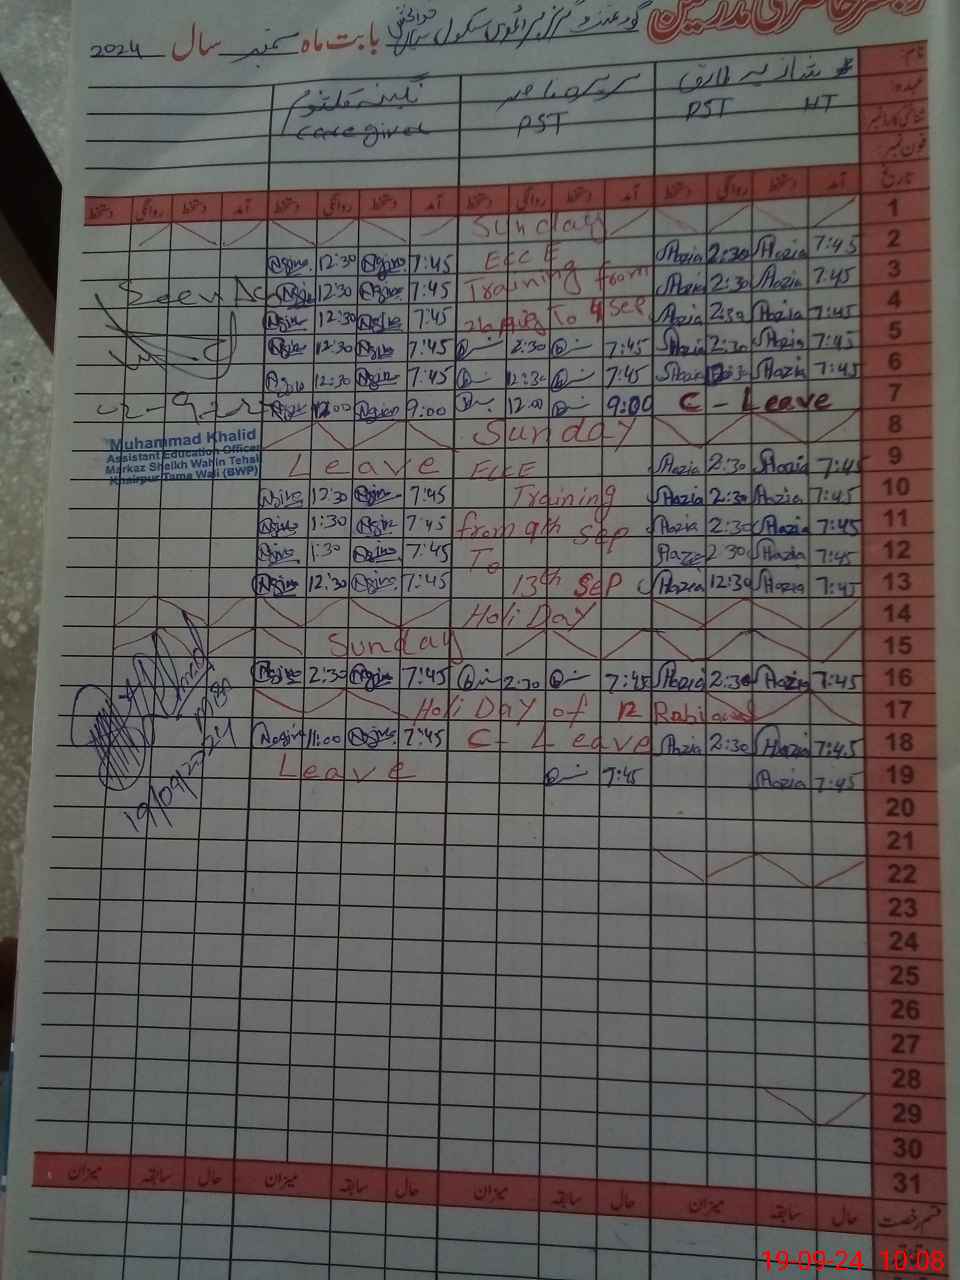 گورنمنٹ گرلز پرائمری سکول
بابت ماہ ستمبر سال 2024
نام
شازیہ طارق
نگینہ کلثوم
عہدہ
PST HT
PST
Caregiver
شناختی کارڈ نمبر
فون نمبر
تاریخ آمد دستخط روانگی دستخط آمد دستخط روانگی دستخط آمد دستخط روانگی دستخط آمد دستخط روانگی دستخط
1 Sunday
2 7:45 Shazia 2:30 Shazia ECCE 7:45 Nagina 12:30 Nagina
3 7:45 Shazia 2:30 Shazia Training from 7:45 Nagina 12:30 Nagina
4 7:45 Shazia 2:30 Shazia To 4 Sep 7:45 Nagina 12:30 Nagina
5 7:45 Shazia 2:30 Shazia 7:45 2:30 7:45 Nagina 12:30 Nagina
6 7:45 Shazia 12:30 Shazia 7:45 12:30 7:45 Nagina 12:30 Nagina
7 C - Leave 9:00 12:00 9:00 Nagina 12:00 Nagina
8 Sunday
Muhammad Khalid
Assistant Education Officer
Markaz Sheikh Wahin Tehsil
Khairpur Tama Wali (BWP)
9 7:45 Shazia 2:30 Shazia ECCE Leave
10 7:45 Shazia 2:30 Shazia Training 7:45 Nagina 12:30 Nagina
11 7:45 Shazia 2:30 Shazia from 9th Sep 7:45 Nagina 1:30 Nagina
12 7:45 Shazia 2:30 Shazia To 7:45 Nagina 1:30 Nagina
13 7:45 Shazia 12:30 Shazia 13th Sep 7:45 Nagina 12:30 Nagina
14 Holi Day
15 Sunday
16 7:45 Shazia 2:30 Shazia 7:45 2:30 7:45 Nagina 2:30 Nagina
17 Holi Day of 12 Rabi
18 7:45 Shazia 2:30 Shazia C- Leave 7:45 Nagina 11:00 Nagina
19 7:45 Shazia 7:45 Leave
19/09/2024
20
21
22
23
24
25
26
27
28
29
30
31
قسم رخصت حال سابقہ میزان حال سابقہ میزان حال سابقہ میزان حال سابقہ میزان
19-09-24 10:08